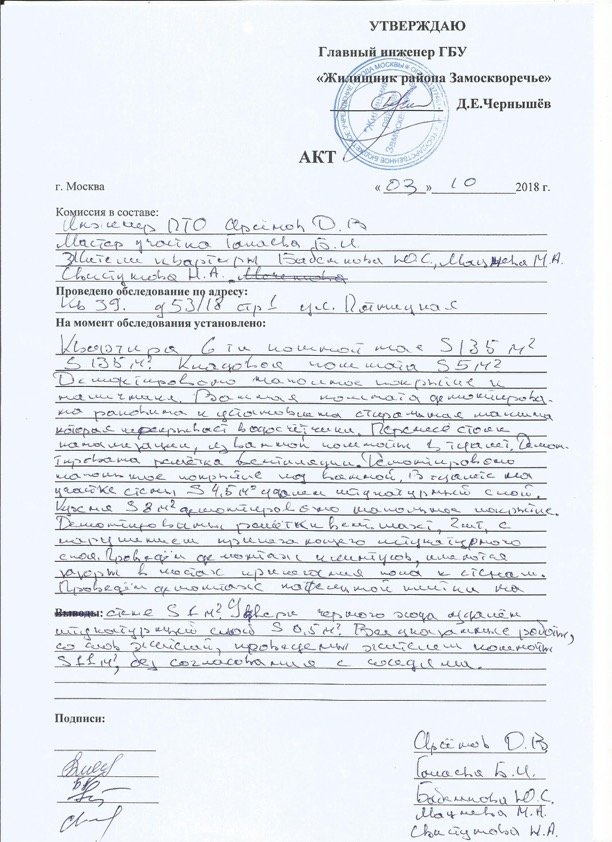 УТВЕРЖДАЮ
Главный инженер ГБУ
«Жилищник района Замоскворечье»
Д.Е.Чернышёв
АКТ
г. Москва « 03 » 10 2018 г.
Комиссия в составе:
Инженер ПТО Арсёнов Д.В
Мастер участка Гонаева Б.И
Жители квартиры Бабенкова Ю.С, М.А.
Свистунова Н.А.
Проведено обследование по адресу:
Кв 39. д 53/18 стр1 ул. Пятницкая
На момент обследования установлено:
Квартира 6 ти комнатная S 135 м²
S 135 м². Кладовая комната S 5 м²
Демонтировано напольное покрытие и
наличники. Ванная комната демонтирова-
на раковина и установлена стиральная машина
которая перекрывает водосчётчики. Перенесе стояк
канализации, из ванной комнаты в туалет. Демон-
тирована решётка вентиляции. Демонтировано
напольное покрытие под ванной, В туалете на
участке стены S 4,5 м² удалён штукатурный слой.
Кухня S 8 м² демонтировано напольное покрытие.
Демонтированы решётки вентшахт, 2шт, с
нарушением прилегающего штукатурного
слоя. Проведён демонтаж плинтусов, имеются
зазоры в местах прилегания пола к стенам.
Проведён демонтаж кафельной плитки на
Выводы: стене S 1 м². У двери черного хода удалён
штукатурный слой S 0,5 м². Вышеуказанные работы,
со слов жителей, проведены жителем комнаты
S 11 м², без согласования с соседями.
Подписи:
Арсёнов Д.В
Гонаева Б.И.
Бабенкова Ю.С.
М.А.
Свистунова Н.А.